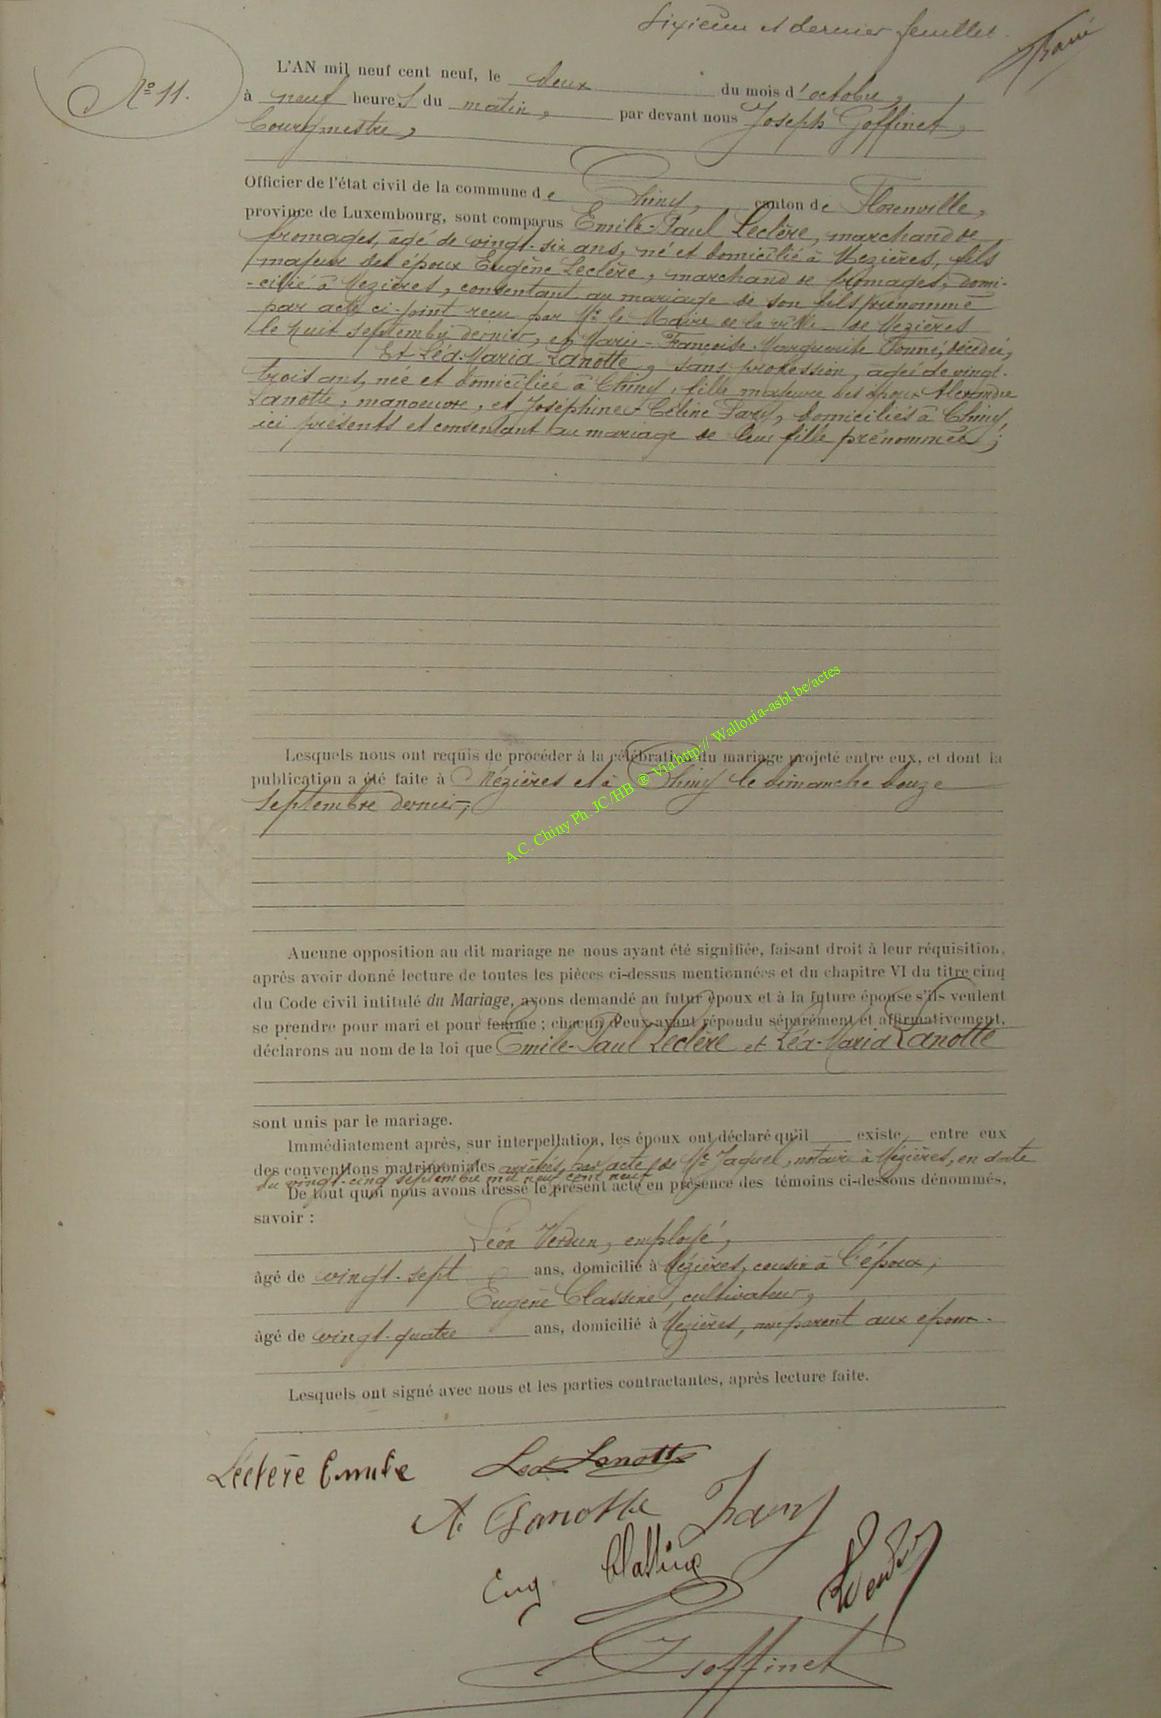 Sixième et dernier feuillet
N° 11.
L'AN mil neuf cent neuf, le deux du mois d'octobre,
à neuf heures du matin, par devant nous Joseph Goffinet,
bourgmestre,
Officier de l'état civil de la commune de Chiny, canton de Florenville,
province de Luxembourg, sont comparus Emile-Paul Leclère, marchand de
fromages, âgé de vingt-six ans, né et domicilié à Mézières, fils
majeur des époux Eugène Leclère, marchand de fromages, domi-
-cilié à Mézières, consentant au mariage de son fils prénommé
par acte ci-joint reçu par Mr le Maire de la ville de Mézières
le huit septembre dernier, et Marie-Françoise-Marguerite décédée,
Et Léa-Maria Lanotte, sans profession, âgée de vingt-
trois ans, née et domiciliée à Chiny, fille majeure des époux Alexandre
Lanotte, manoeuvre, et Joséphine-Céline domiciliés à Chiny,
ici présents et consentant au mariage de leur fille prénommée;
Lesquels nous ont requis de procéder à la célébration du mariage projeté entre eux, et dont la
publication a été faite à Mézières et à Chiny le dimanche douze
septembre dernier,
A.C. Chiny Ph. JC/HB ® Via http:// Wallonia-asbl.be/actes
Aucune opposition au dit mariage ne nous ayant été signifiée, faisant droit à leur réquisition,
après avoir donné lecture de toutes les pièces ci-dessus mentionnées et du chapitre VI du titre cinq
du Code civil intitulé du Mariage, avons demandé au futur époux et à la future épouse s'ils veulent
se prendre pour mari et pour femme ; chacun d'eux ayant répondu séparément et affirmativement,
déclarons au nom de la loi que Emile-Paul Leclère et Léa-Maria Lanotte
sont unis par le mariage.
Immédiatement après, sur interpellation, les époux ont déclaré qu'il existe entre eux
des conventions matrimoniales arrêtées par acte de Me Jaquel, notaire à Mézières, en date
du vingt-cinq septembre mil neuf cent neuf
De tout quoi nous avons dressé le présent acte en présence des témoins ci-dessous dénommés,
savoir :
Léon Verdun, employé,
âgé de vingt-sept ans, domicilié à Mézières, cousin à l'époux,
Eugène Classine, cultivateur,
âgé de vingt-quatre ans, domicilié à Mézières, non parent aux époux.
Lesquels ont signé avec nous et les parties contractantes, après lecture faite.
Leclère Emile Léa Lanotte
A. Lanotte
Eug. Classine
J Goffinet